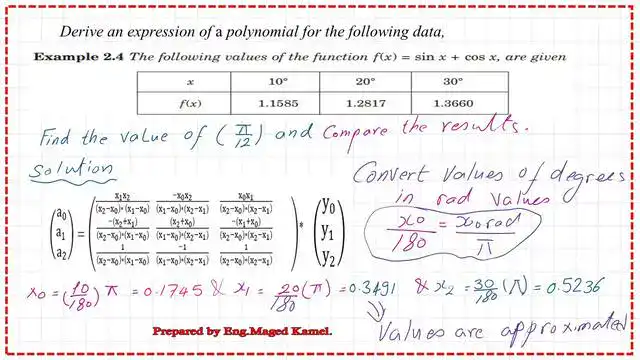 Derive an expression of a polynomial for the following data,
Example 2.4 The following values of the function f(x) = sin x + cos x, are given
x 10° 20° 30°
f(x) 1.1585 1.2817 1.3660
Find the value of (π/12) and Compare the results.
Solution
Convert values of degrees
in rad values
x0/180 = x0 rad/π
(a0 a1 a2) = ( x1x2/((x2−x0)*(x1−x0)) −x0x2/((x1−x0)*(x2−x1)) x0x1/((x2−x0)*(x2−x1))
−(x2+x1)/((x2−x0)*(x1−x0)) (x2+x0)/((x1−x0)*(x2−x1)) −(x1+x0)/((x2−x0)*(x2−x1))
1/((x2−x0)*(x1−x0)) −1/((x1−x0)*(x2−x1)) 1/((x2−x0)*(x2−x1)) ) * (y0 y1 y2)
x0 = (10/180) π = 0.1745 & x1 = 20/180 (π) = 0.3491 & x2 = 30/180 (π) = 0.5236
Values are approximated
Prepared by Eng.Maged Kamel.